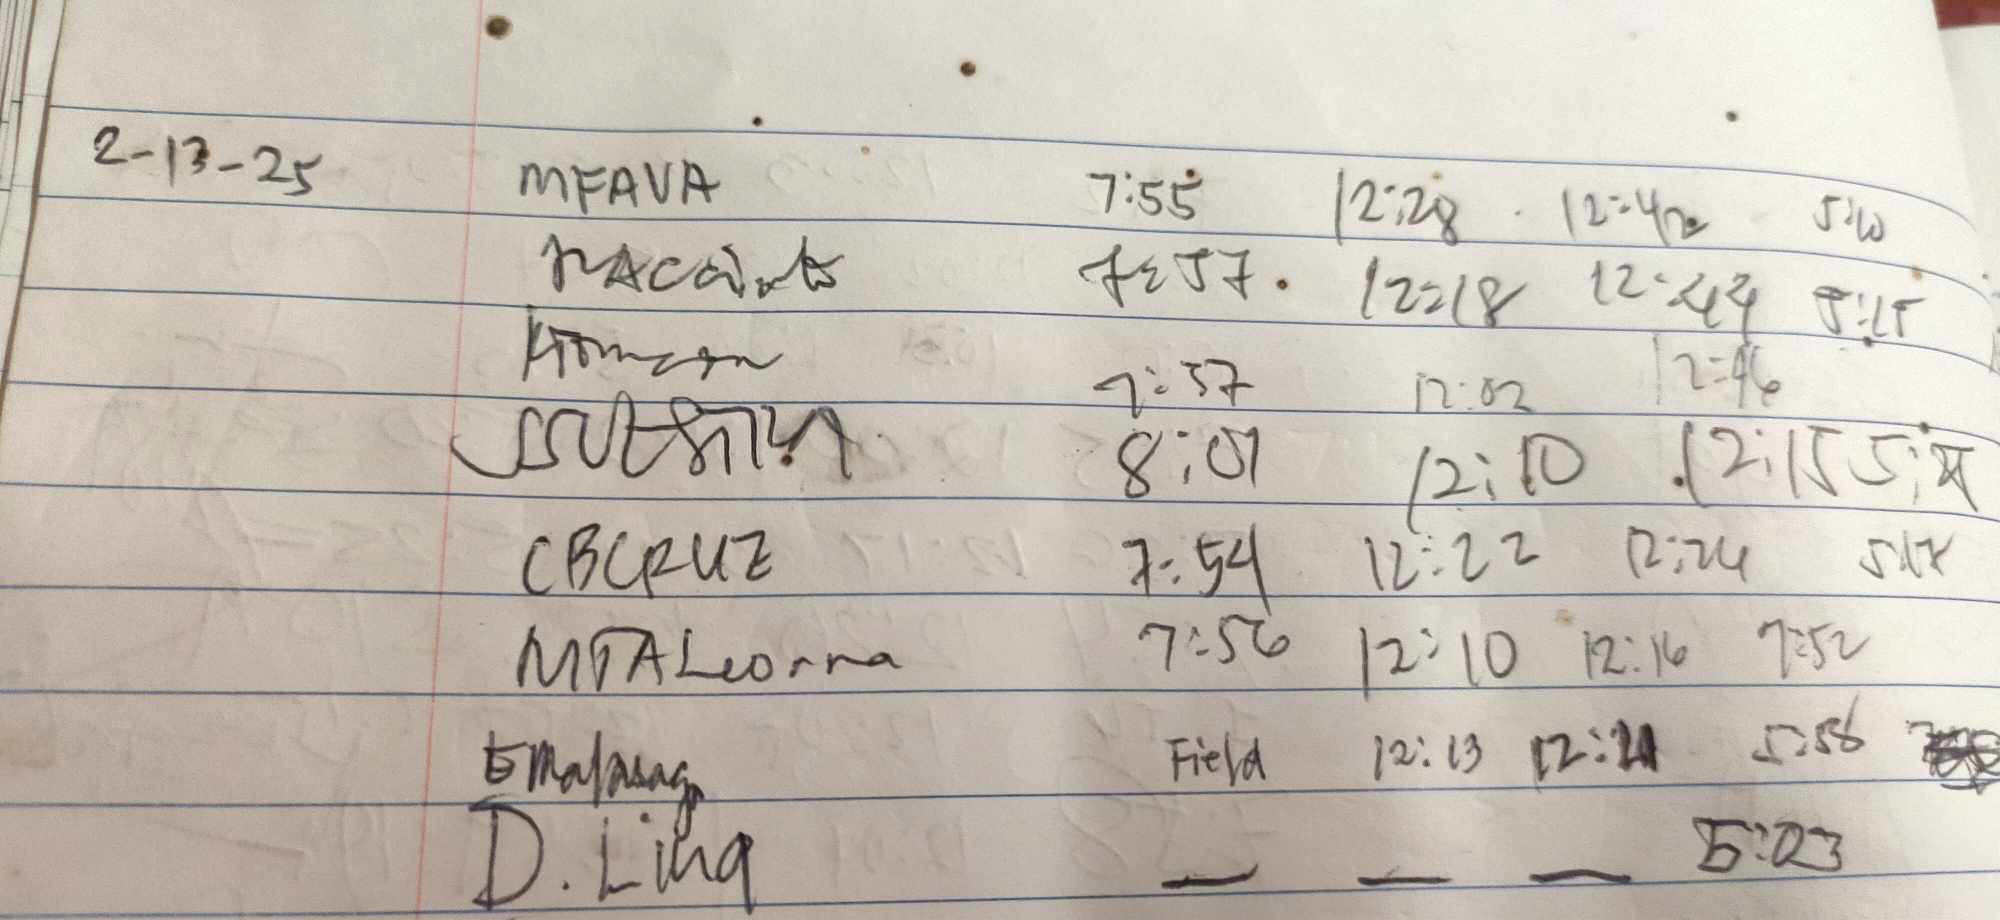 2-13-25 MFAVA 7:55 12:28 12:42 5:10
7:57 12:18 12:44 5:15
7:57 12:02 12:46
8:01 12:10 12:15
CBCRUZ 7:54 12:22 12:24 5:17
MTALeonna 7:56 12:10 12:16 7:52
Field 12:13 12:21 5:56
D. Ling — — — 5:03